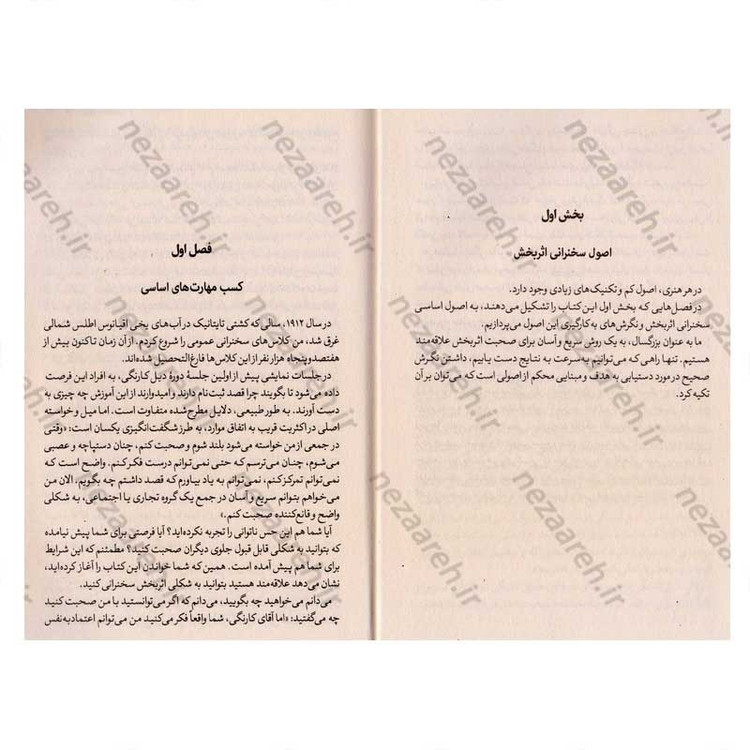 بخش اول
اصول سخنرانی اثربخش
در هر هنری، اصول کم و تکنیک‌های زیادی وجود دارد.
در فصل‌هایی که بخش اول این کتاب را تشکیل می‌دهند، به اصول اساسی
سخنرانی اثربخش و نگرش‌های به‌کارگیری این اصول می‌پردازیم.
ما به عنوان بزرگسال، به یک روش سریع و آسان برای صحبت اثربخش علاقه‌مند
هستیم. تنها راهی که می‌توانیم به‌سرعت به نتایج دست یابیم، داشتن نگرش
صحیح در مورد دستیابی به هدف و مبنایی محکم از اصولی است که می‌توان بر آن
تکیه کرد.
فصل اول
کسب مهارت‌های اساسی
در سال ۱۹۱۲، سالی که کشتی تایتانیک در آب‌های یخی اقیانوس اطلس شمالی
غرق شد، من کلاس‌های سخنرانی عمومی را شروع کردم. از آن زمان تاکنون بیش از
هفتصد و پنجاه هزار نفر از این کلاس‌ها فارغ‌التحصیل شده‌اند.
در جلسات نمایشی پیش از اولین جلسهٔ دورهٔ دیل کارنگی، به افراد این فرصت
داده می‌شود تا بگویند چرا قصد ثبت‌نام دارند و امیدوارند از این آموزش چه چیزی به
دست آورند. به طور طبیعی، دلایل مطرح شده متفاوت است. اما میل و خواسته
اصلی در اکثریت قریب به اتفاق موارد، به طرز شگفت‌انگیزی یکسان است: «وقتی
در جمعی از من خواسته می‌شود بلند شوم و صحبت کنم، چنان دستپاچه و عصبی
می‌شوم، چنان می‌ترسم که حتی نمی‌توانم درست فکر کنم. واضح است که
نمی‌توانم تمرکز کنم، نمی‌توانم به یاد بیاورم که قصد داشتم چه بگویم. الان من
می‌خواهم بتوانم سریع و آسان در جمع یک گروه تجاری یا اجتماعی، به شکلی
واضح و قانع‌کننده صحبت کنم.»
آیا شما هم این حس ناتوانی را تجربه نکرده‌اید؟ آیا فرصتی برای شما پیش نیامده
که بتوانید به شکلی قابل قبول جلوی دیگران صحبت کنید؟ مطمئنم که این شرایط
برای شما هم پیش آمده است. همین که شما خواندن این کتاب را آغاز کرده‌اید،
نشان می‌دهد علاقه‌مند هستید بتوانید به شکلی اثربخش سخنرانی کنید.
می‌دانم می‌خواهید چه بگویید، می‌دانم که اگر می‌توانستید با من صحبت کنید
چه می‌گفتید: «اما آقای کارنگی، شما واقعاً فکر می‌کنید من می‌توانم اعتماد به نفس
nezaareh.ir
nezaareh.ir
nezaareh.ir
nezaareh.ir
nezaareh.ir
nezaareh.ir
nezaareh.ir
nezaareh.ir
nezaareh.ir
nezaareh.ir